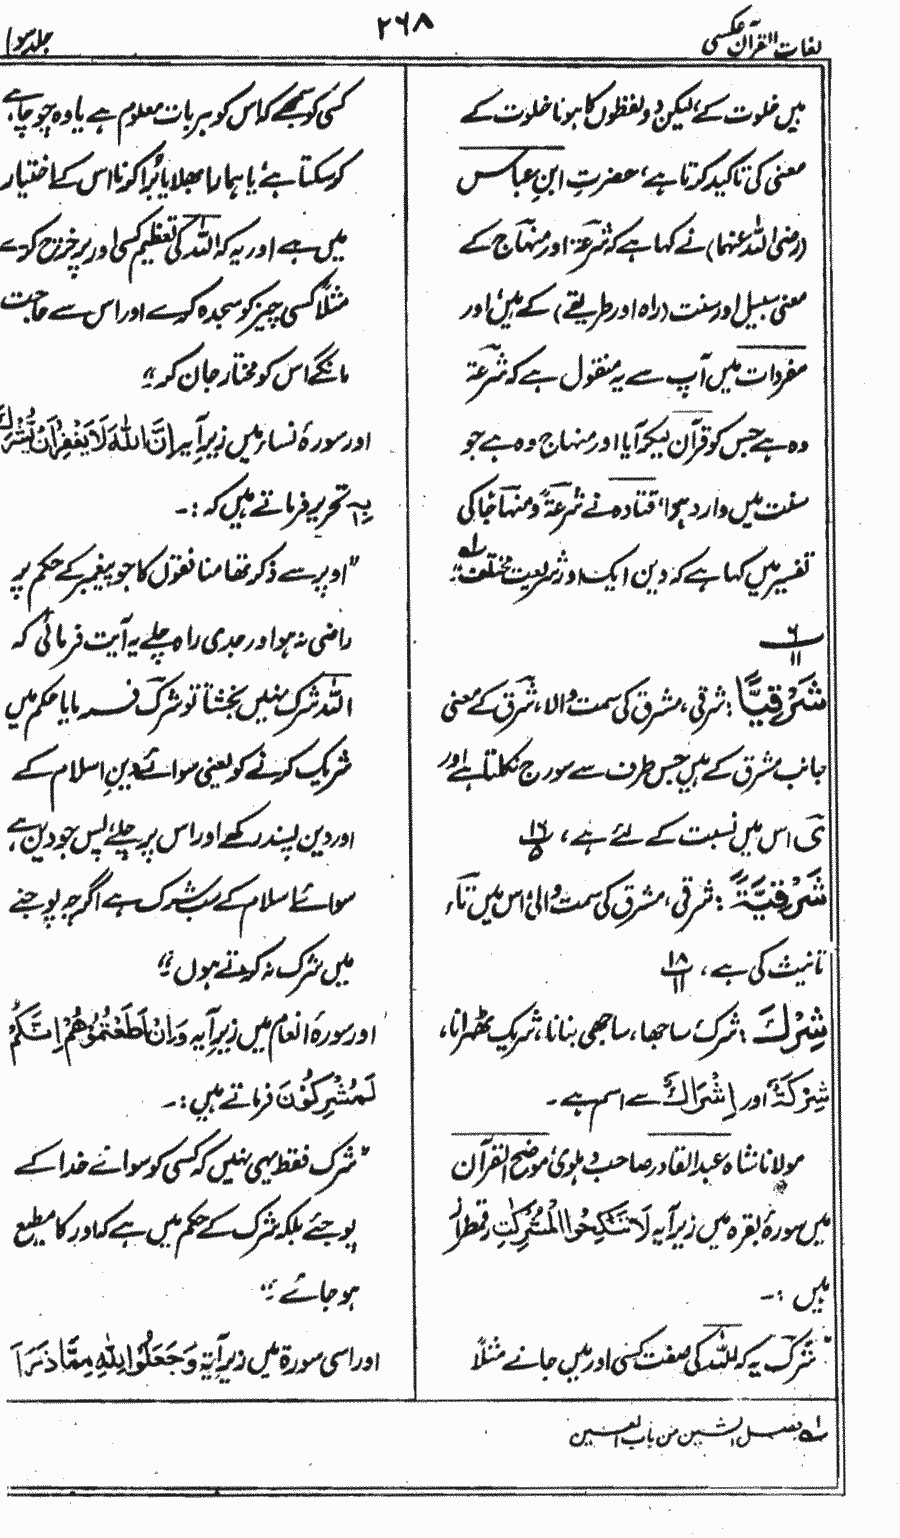 لغات القرآن عکسی
۲۶۸
جلد سوم
میں خلوت کے، لیکن دو لفظوں کا ہونا خلوت کے
معنی کی تاکید کرتا ہے، حضرتِ ابنِ عباس
(رضی اللہ عنہما) نے کہا ہے کہ شرعۃ اور منہاج کے
معنی سبیل اور سنت (راہ اور طریقے) کے ہیں، اور
مفردات میں آپ سے یہ منقول ہے کہ شرعۃ
وہ ہے جس کو قرآن لیکر آیا اور منہاج وہ ہے جو
سنت میں وارد ہوا، قتادہ نے شرعۃً و منہاجًا کی
تفسیر میں کہا ہے کہ دین ایک اور شریعت مختلف۔ ؎۱
۶
۱۱
شَرْقِیًّا: شرقی، مشرق کی سمت والا، شرق کے معنی
جانب مشرق کے ہیں جس طرف سے سورج نکلتا ہے اور
ی اس میں نسبت کے لئے ہے، ۱۶
۵
شَرْقِیَّۃً: شرقی، مشرق کی سمت والی، اس میں تاء
تانیث کی ہے، ۱۸
۱۱
شِرْكَ: شرک، ساجھا، ساجھی بنانا، شریک ٹھہرانا،
شِرْكَۃٌ اور اِشْرَاكٌ سے اسم ہے۔
مولانا شاہ عبدالقادر صاحب دہلوی موضح القرآن
میں سورۂ بقرہ میں زیر آیہ لَا تَنْكِحُوا الْمُشْرِكٰتِ رقمطراز
ہیں :۔
"شرک یہ کہ اللہ کی صفت کسی اور میں جانے مثلاً
کسی کو سمجھے کہ اس کو ہر بات معلوم ہے یا وہ جو چاہے
کر سکتا ہے یا ہمارا بھلا یا برا کرنا اس کے اختیار
میں ہے اور یہ کہ اللہ کی تعظیم کسی اور پر خرچ کرے
مثلاً کسی چیز کو سجدہ کرے اور اس سے حاجت
مانگے اس کو مختار جان کر۔"
اور سورۂ نساء میں زیر آیہ اِنَّ اللّٰهَ لَا يَغْفِرُ اَنْ يُّشْرَكَ
بِهٖ تحریر فرماتے ہیں کہ :۔
"اوپر سے ذکر تھا منافقوں کا جو پیغمبر کے حکم پر
راضی نہ ہو اور جدی راہ چلے یہ آیت فرمائی کہ
اللہ شرک نہیں بخشتا تو شرک فرمایا حکم میں
شریک کرنے کو یعنی سوائے دینِ اسلام کے
اور دین پسند رکھے اور اس پر چلے پس جو دین ہے
سوائے اسلام کے سب شرک ہے اگرچہ پوجنے
میں شرک نہ کرتے ہوں۔"
اور سورۂ انعام میں زیر آیہ وَاِنْ اَطَعْتُمُوْهُمْ اِنَّكُمْ
لَمُشْرِكُوْنَ فرماتے ہیں :۔
"شرک فقط یہی نہیں کہ کسی کو سوائے خدا کے
پوجئے بلکہ شرک کے حکم میں ہے کہ اور کا مطیع
ہو جائے۔"
اور اسی سورۃ میں زیر آیۃ وَجَعَلُوْا لِلّٰهِ مِمَّا ذَرَاَ
؎۱ فصل الشین من باب العین